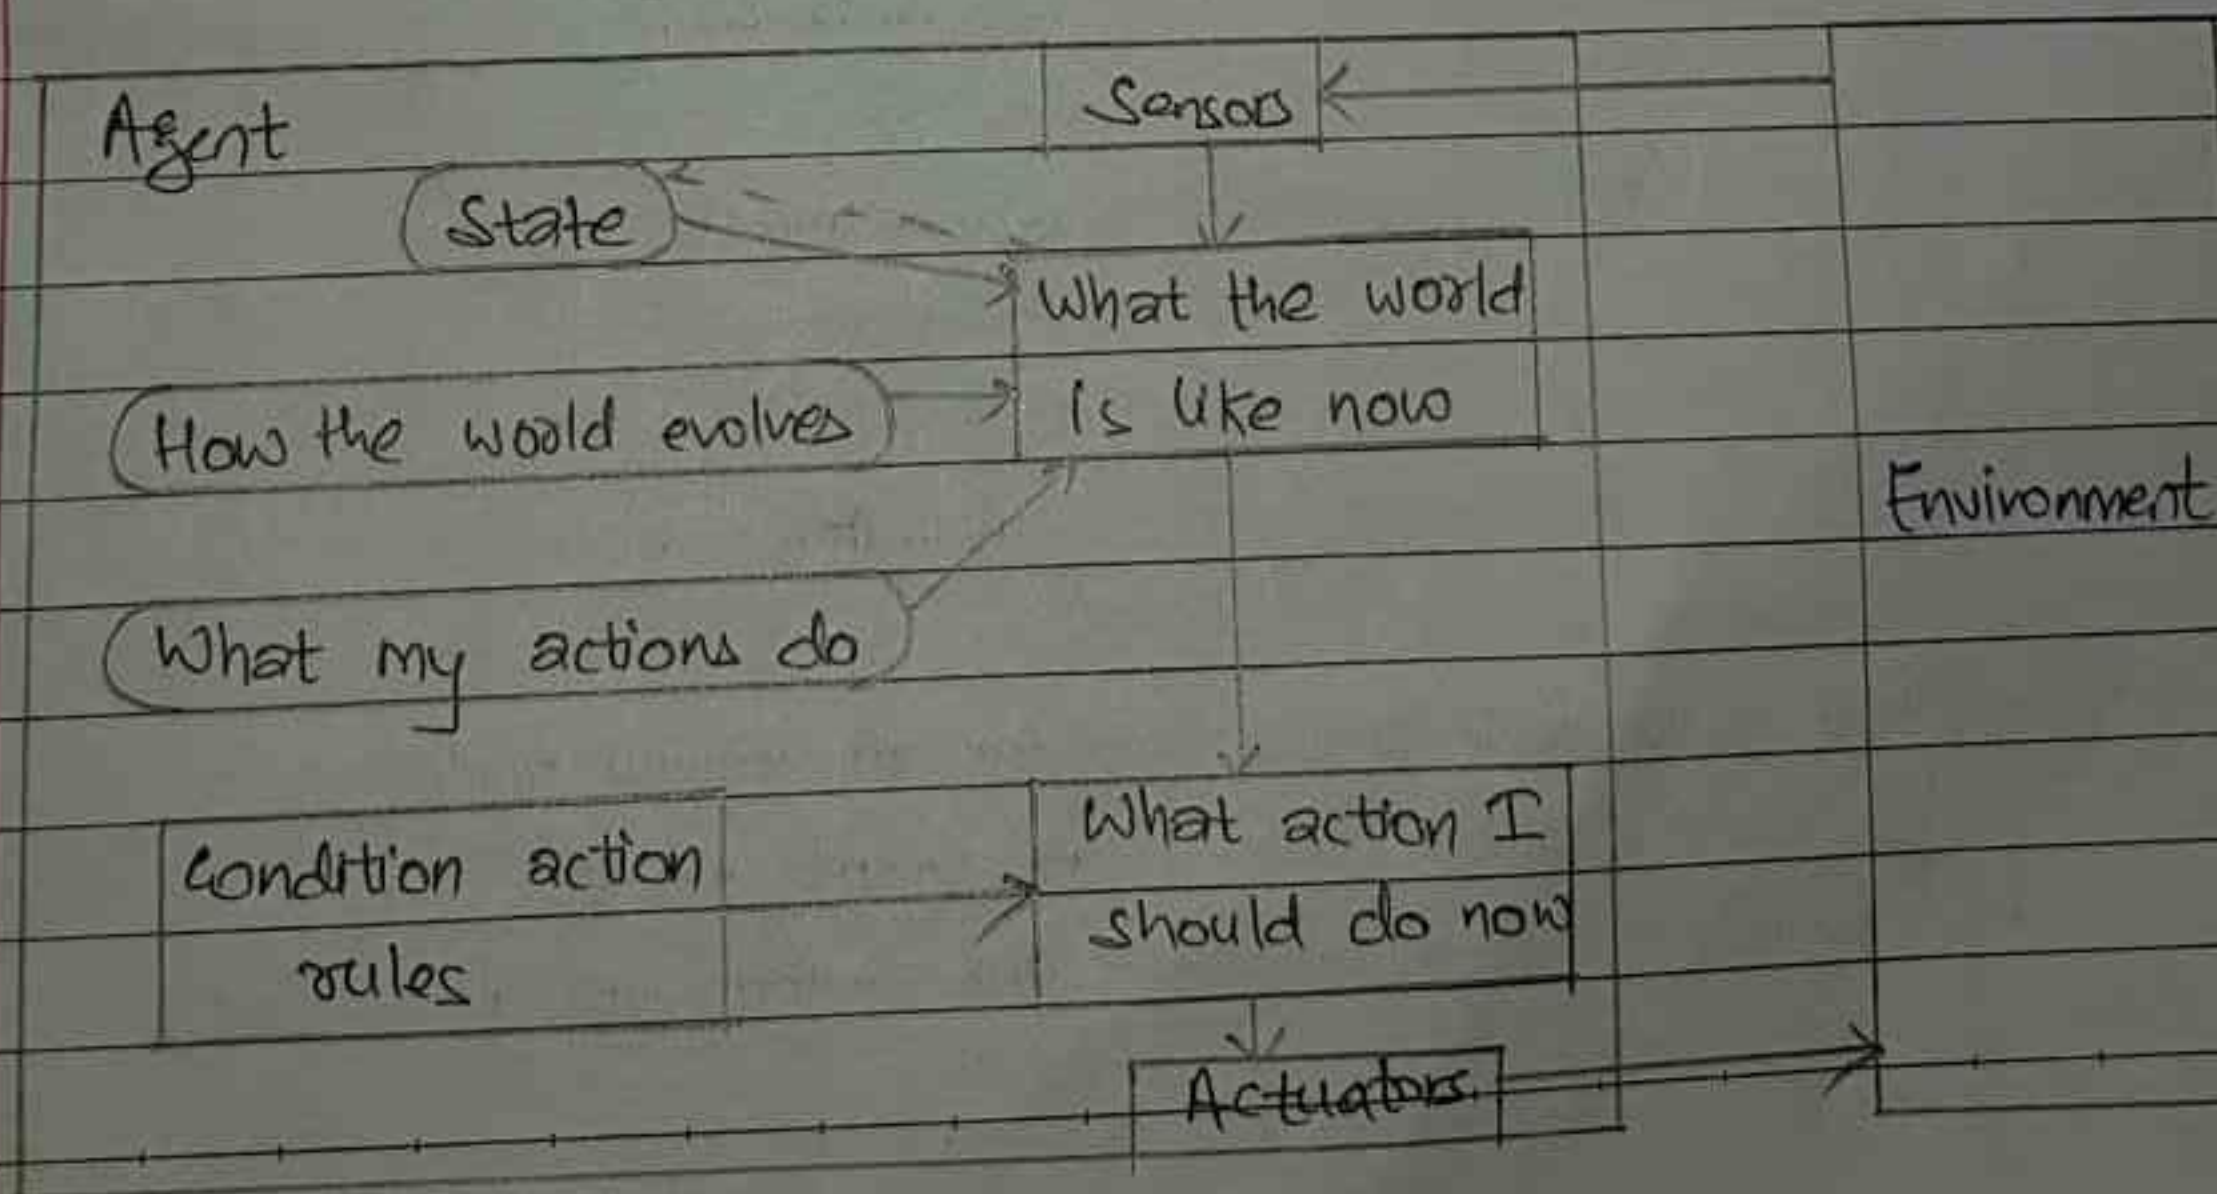 Agent
Sensors
State
What the world
is like now
How the world evolves
Environment
What my actions do
Condition action
rules
What action I
should do now
Actuators